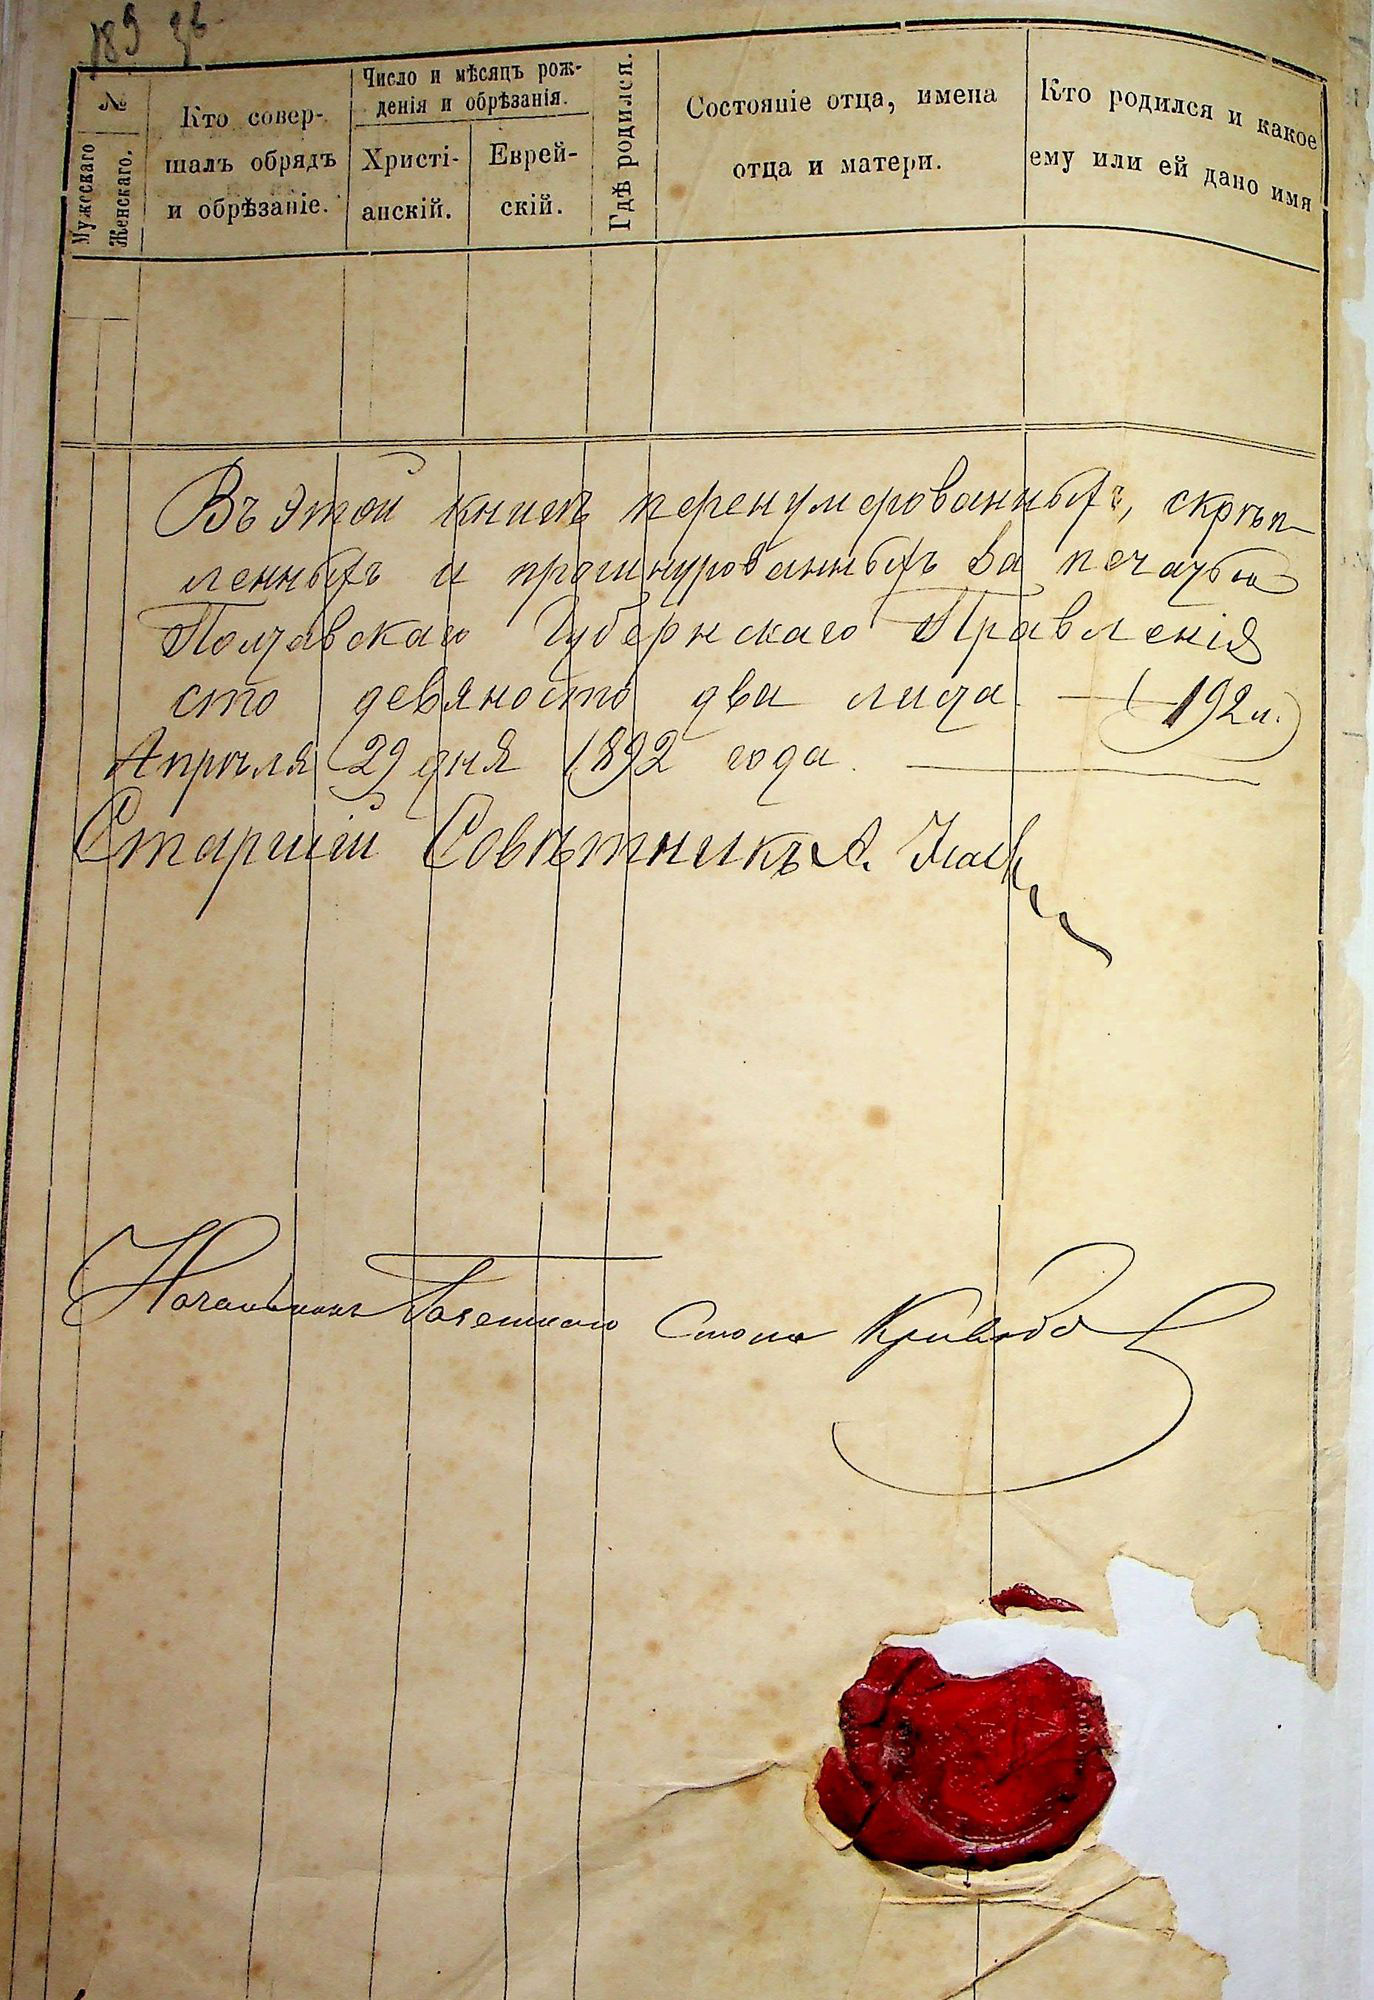 189
№
Мужескаго
Женскаго.
Кто совер-
шалъ обрядъ
и обрѣзаніе.
Число и мѣсяцъ рож-
денія и обрѣзанія.
Христі-
анскій.
Еврей-
скій.
Гдѣ родился.
Состояніе отца, имена
отца и матери.
Кто родился и какое
ему или ей дано имя
Въ этой книгѣ перенумерованныхъ, скрѣп-
ленныхъ и прошнурованныхъ за печатью
Полтавскаго Губернскаго Правленія
сто девяносто два листа (192 л.)
Апрѣля 29 дня 1892 года.
Старшій Совѣтникъ А.
Начальникъ Газетнаго Стола